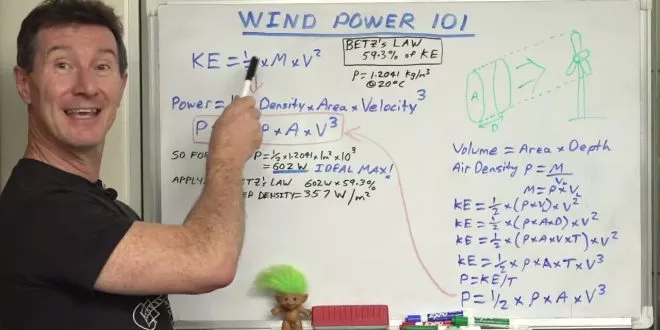 WIND POWER 101
KE = ½ × M × V²
BETZ's LAW
59.3% of KE
ρ = 1.2041 kg/m³
@ 20°C
Power = Density × Area × Velocity³
P ρ × A × V³
SO FO P = ½ × 1.2041 × 1m² × 10³
= 602W IDEAL MAX!
APPLY TZ's LAW 602W × 59.3%
ER DENSITY = 357 W/m²
A
D
Volume = Area × Depth
Air Density ρ = M/V
M = ρ × V
KE = ½ × (ρ × V) × V²
KE = ½ × (ρ × A × D) × V²
KE = ½ × (ρ × A × V × T) × V²
KE = ½ × ρ × A × T × V³
P = KE/T
P = ½ × ρ × A × V³
EXPO